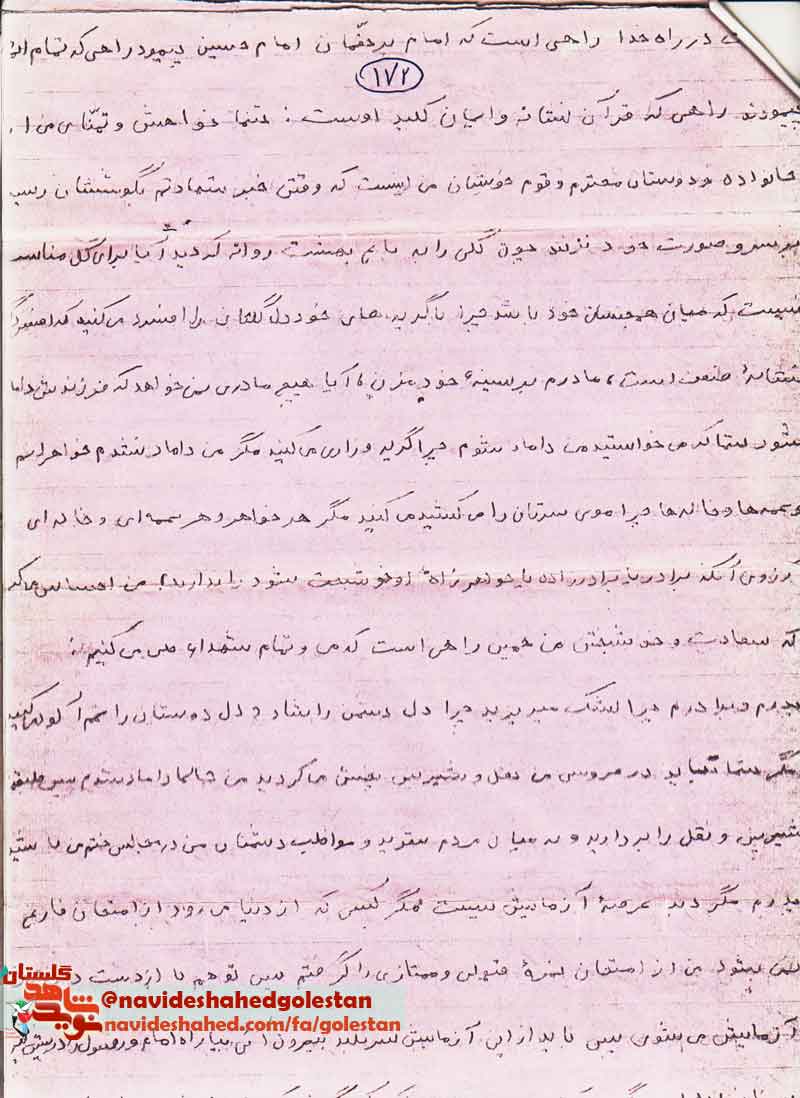 در راه خدا راهی است که امام بر حقمان امام حسین پیمود راهی که تمام
۱۷۲
پیمودند راهی که قرآن نشانه و ایمان کلید اوست : تنها خواهش و تمنّای من از
خانواده و دوستان محترم و قوم خویشان من اینست که وقتی خبر شهادتم بگوششان رسید
بر سر و صورت خود نزنند چون گلی را به باغ بهشت روانه کردید آیا برای گل مناسب
نیست که میان همجنسان خود باشد چرا با گریه های خود دل گلهای را افسرده می کنید که
نشانهٔ ضعف است، مادرم بر سینهٔ خود مزن، آیا هیچ مادری نمی خواهد که فرزندش داماد
شود شما که می خواستید من داماد شوم چرا گریه و زاری می کنید مگر من داماد نشدم خواهرانم
و عمه ها و خاله ها چرا موی سرتان را می کشید می کنید مگر هر خواهر و هر عمه ای و خاله ای
آرزوی آنکه برادر یا برادرزاده یا خواهرزادهٔ او خوشبخت شود را ندارید، من احساس می کنم
که سعادت و خوشبختی من همین راهی است که من و تمام شهداء طی می کنیم :
پدرم و برادرم چرا اشک میریزید چرا دل دشمن را شاد و دل دوستان را غم آلوده کنید
مگر شما نباید در عروسی من نقل و شیرینی پخش می کردید من حالا داماد شدم پس
شیرینی و نقل را بردارید و به میان مردم بروید و مواظب دشمنان من در مجالس ختم من باشید
پدرم مگر دنیا عرصهٔ آزمایش نیست مگر کسی که از دنیا می رود از امتحان فارغ
نمی شود من از امتحان نمرهٔ قبولی و ممتازی را گرفتم پس تو هم با از دست
آزمایش می شوی پس باید از این آزمایش سربلند بیرون آیی بیا راه امام و رسول را در پیش
@navideshahedgolestan
navideshahed.com/fa/golestan
نوید شاهد گلستان